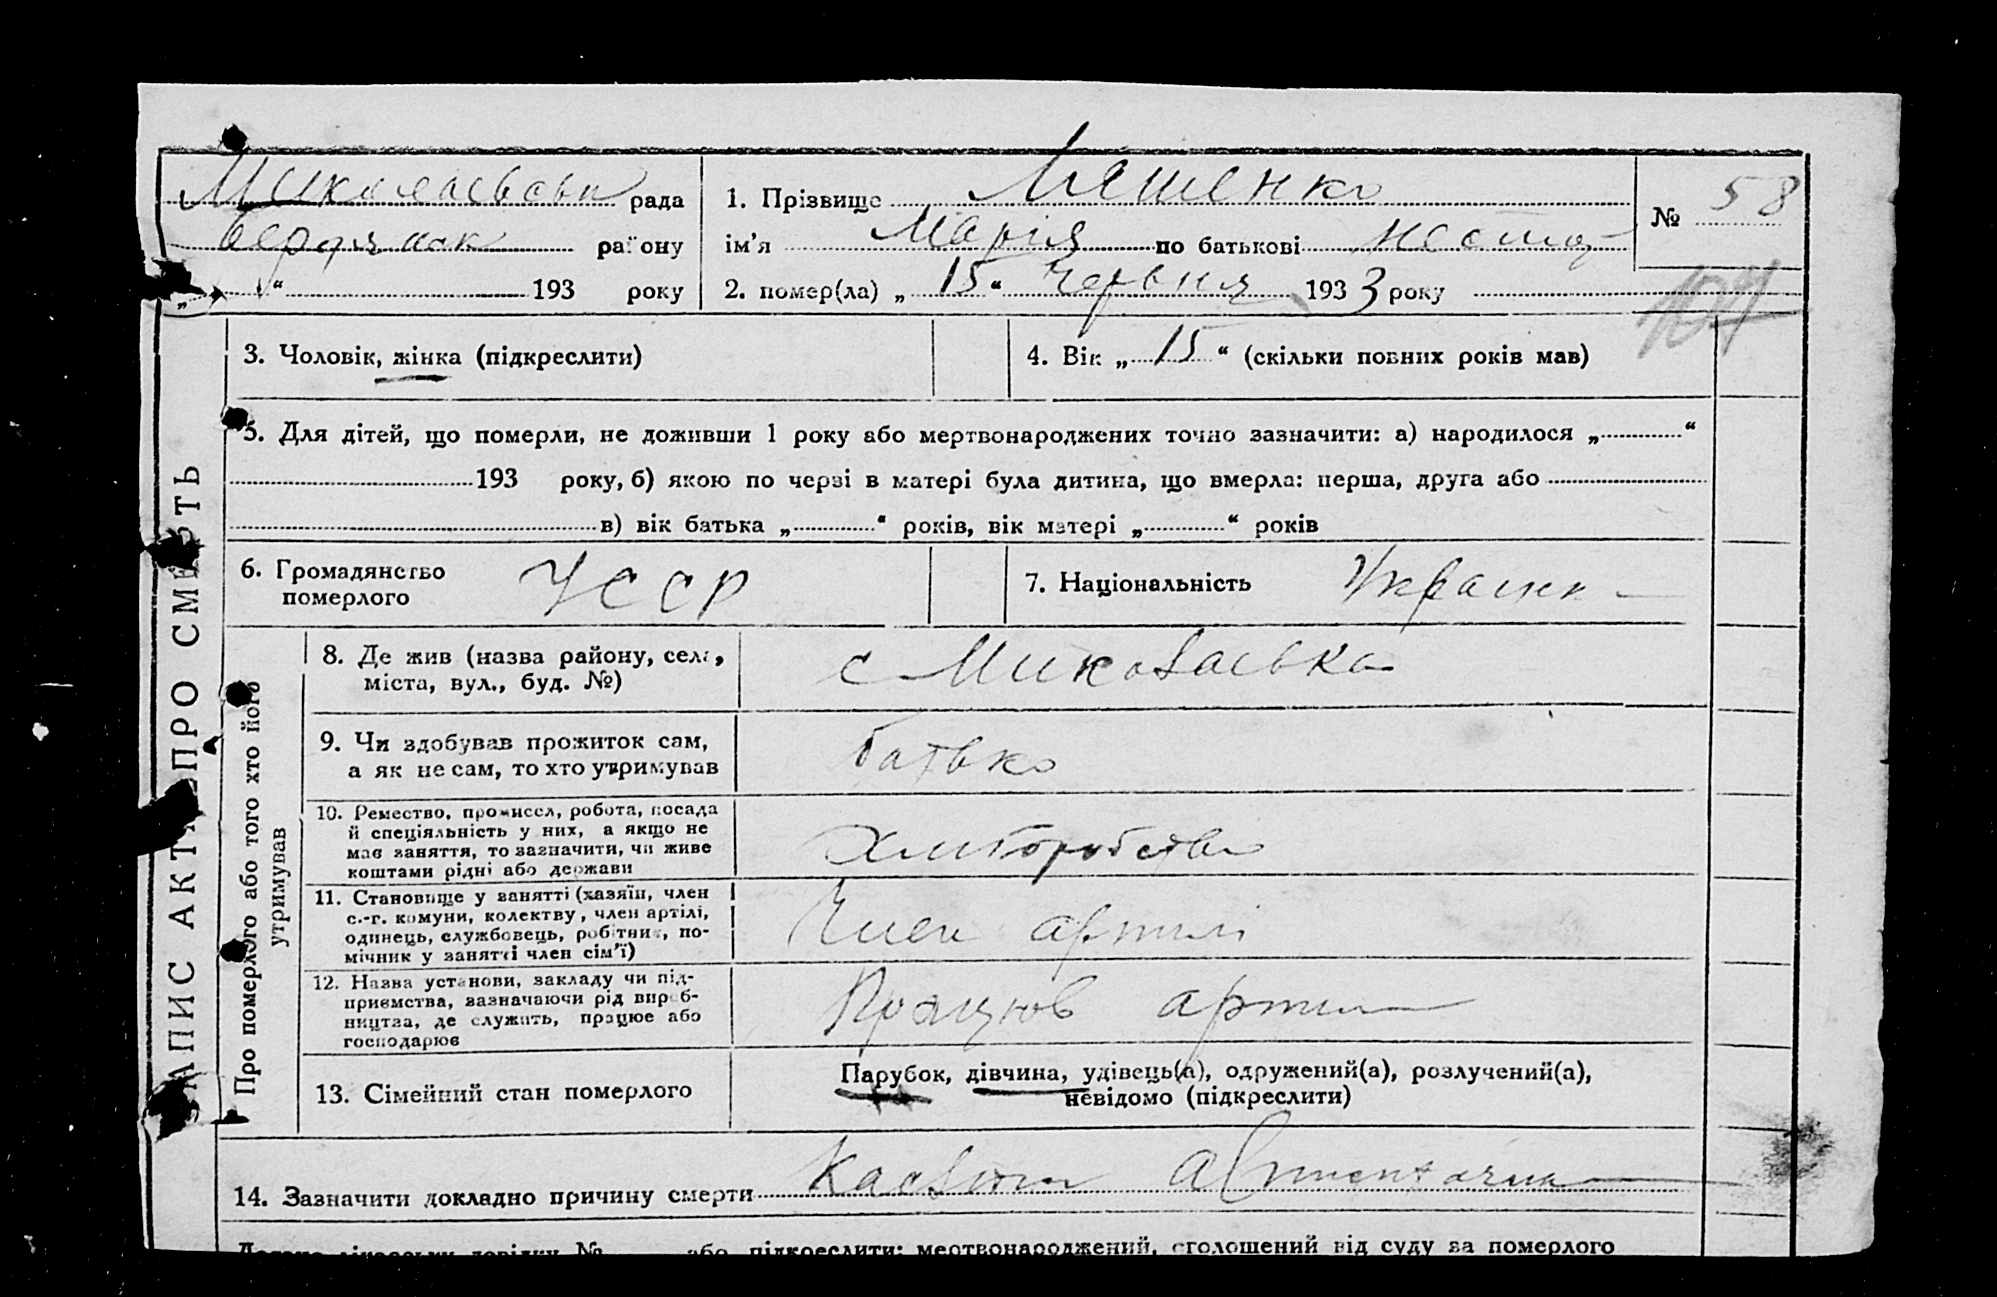 ЗАПИС АКТА ПРО СМЕРТЬ
Миколаївська рада
Бердянськ району
„ “ 193 року
1. Прізвище Ляшенко
ім’я Марія по батькові
2. помер(ла) „ 15 “ Червня 1933 року
№ 58
104
3. Чоловік, жінка (підкреслити)
4. Вік „ 15 “ (скільки повних років мав)
5. Для дітей, що померли, не доживши 1 року або мертвонароджених точно зазначити: а) народилося „ “
193 року, б) якою по черзі в матері була дитина, що вмерла: перша, друга або
в) вік батька „ “ років, вік матері „ “ років
6. Громадянство
померлого
УССР
7. Національність Украинк
Про померлого або того хто його
утримував
8. Де жив (назва району, села,
міста, вул., буд. №)
с Миколаевка
9. Чи здобував прожиток сам,
а як не сам, то хто утримував
батько
10. Ремество, промисел, робота, посада
й спеціяльність у них, а якщо не
має заняття, то зазначити, чи живе
коштами рідні або держави
Хліборобство
11. Становище у занятті (хазяїн, член
с.-г. комуни, колектву, член артілі,
одинець, службовець, робітник, по-
мічник у занятті член сім’ї)
Член артилі
12. Назва установи, закладу чи під-
приємства, зазначаючи рід вироб-
ництва, де служить, працює або
господарює
Працюв артил
13. Сімейний стан померлого
Парубок, дівчина, удівець(а), одружений(а), розлучений(а),
невідомо (підкреслити)
14. Зазначити докладно причину смерти
або підкреслити: мертвонароджений, оголошений від суду за померлого